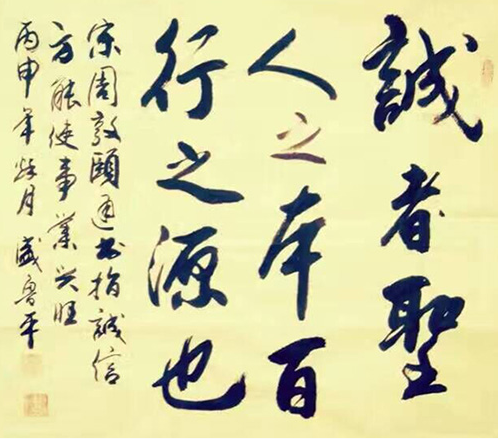 誠者聖
人之本百
行之源也
宋周敦頤通书指誠信
方能使事業兴旺
丙申年月 盛鲁平